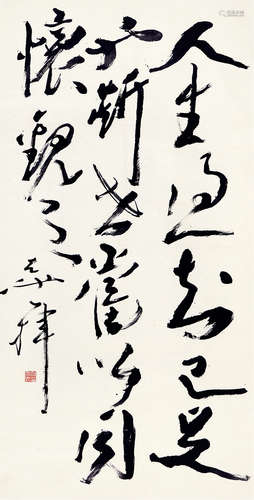 人生得一知己足
矣斯世當以同
懷觀之